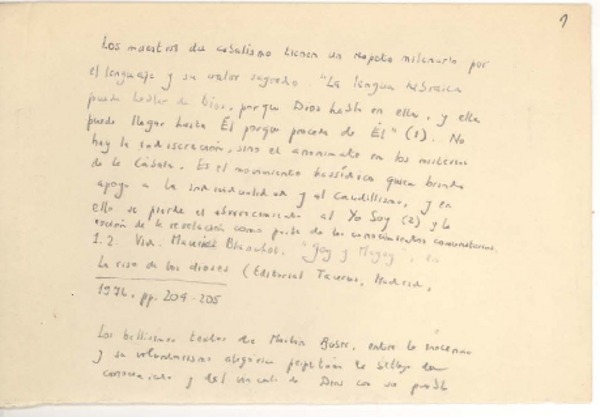 1
Los maestros del cabalismo tienen un respeto milenario por
el lenguaje y su valor sagrado. "La lengua hebraica
puede hablar de Dios, porque Dios habla en ella, y ella
puede llegar hasta Él porque procede de Él" (1). No
hay la indiscreción, sino el anonimato en los misterios
de la Cábala. Es el movimiento hassídico quien brinda
apoyo a la individualidad y al caudillismo, y en
ello se pierde el aborrecimiento al Yo Soy (2) y la
noción de la revelación como parte de los conocimientos comunitarios.
1. 2. Vid. Maurice Blanchot. "Gog y Magog", en
La risa de los dioses (Editorial Taurus, Madrid,
1976, pp. 204-205
Los bellísimos textos de Martin Buber, entre lo
y su alegórico la del
y del vínculo de Dios con su pueblo